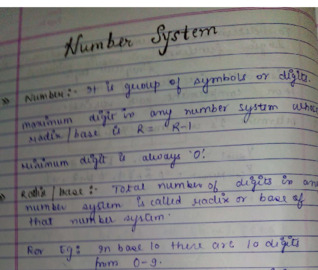 Number System
Number:- It is group of symbols or digits.
maximum digit in any number system whose
radix/base is R = R-1
Minimum digit is always '0'.
Radix/base:- Total number of digits in any
number system is called radix or base of
that number system.
For Eg: In base 10 there are 10 digits
from 0-9.